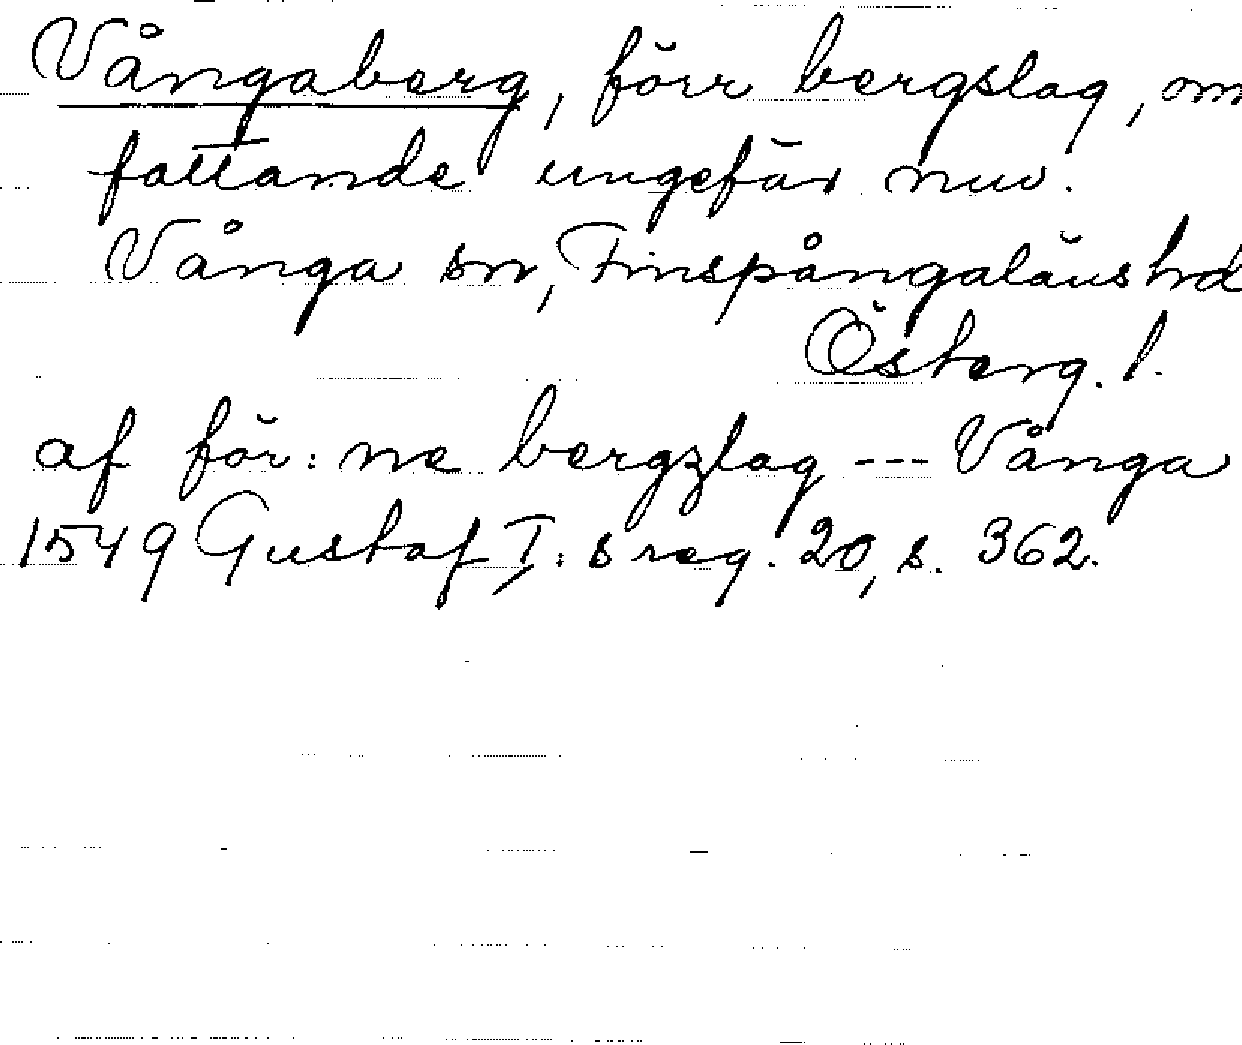 Vångaberg, förr bergslag, om
fattande ungefär nuv.
Vånga sn, Finspångaläns hd
Österg. l.
af för: ne bergzlag --- Vånga
1549 Gustaf I: s reg. 20, s. 362.